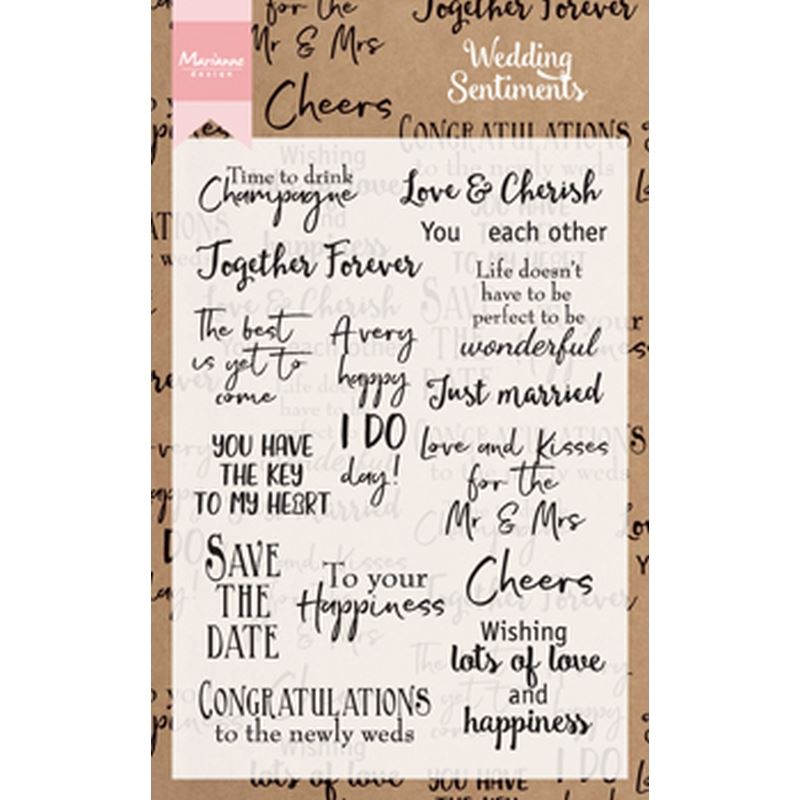 for the
Mr & Mrs
Together Forever
Marianne
design
Wedding
Sentiments
Cheers
CONGRATULATIONS
Time to drink
Champagne
Together Forever
The best
is yet to
come
A very
happy
I DO
day!
YOU HAVE
THE KEY
TO MY HEART
SAVE
THE
DATE
To your
Happiness
CONGRATULATIONS
to the newly weds
Love & Cherish
You each other
Life doesn't
have to be
perfect to be
wonderful
Just married
Love and Kisses
for the
Mr & Mrs
Cheers
Wishing
lots of love
and
happiness
lots of love
YOU HAVE
I DO